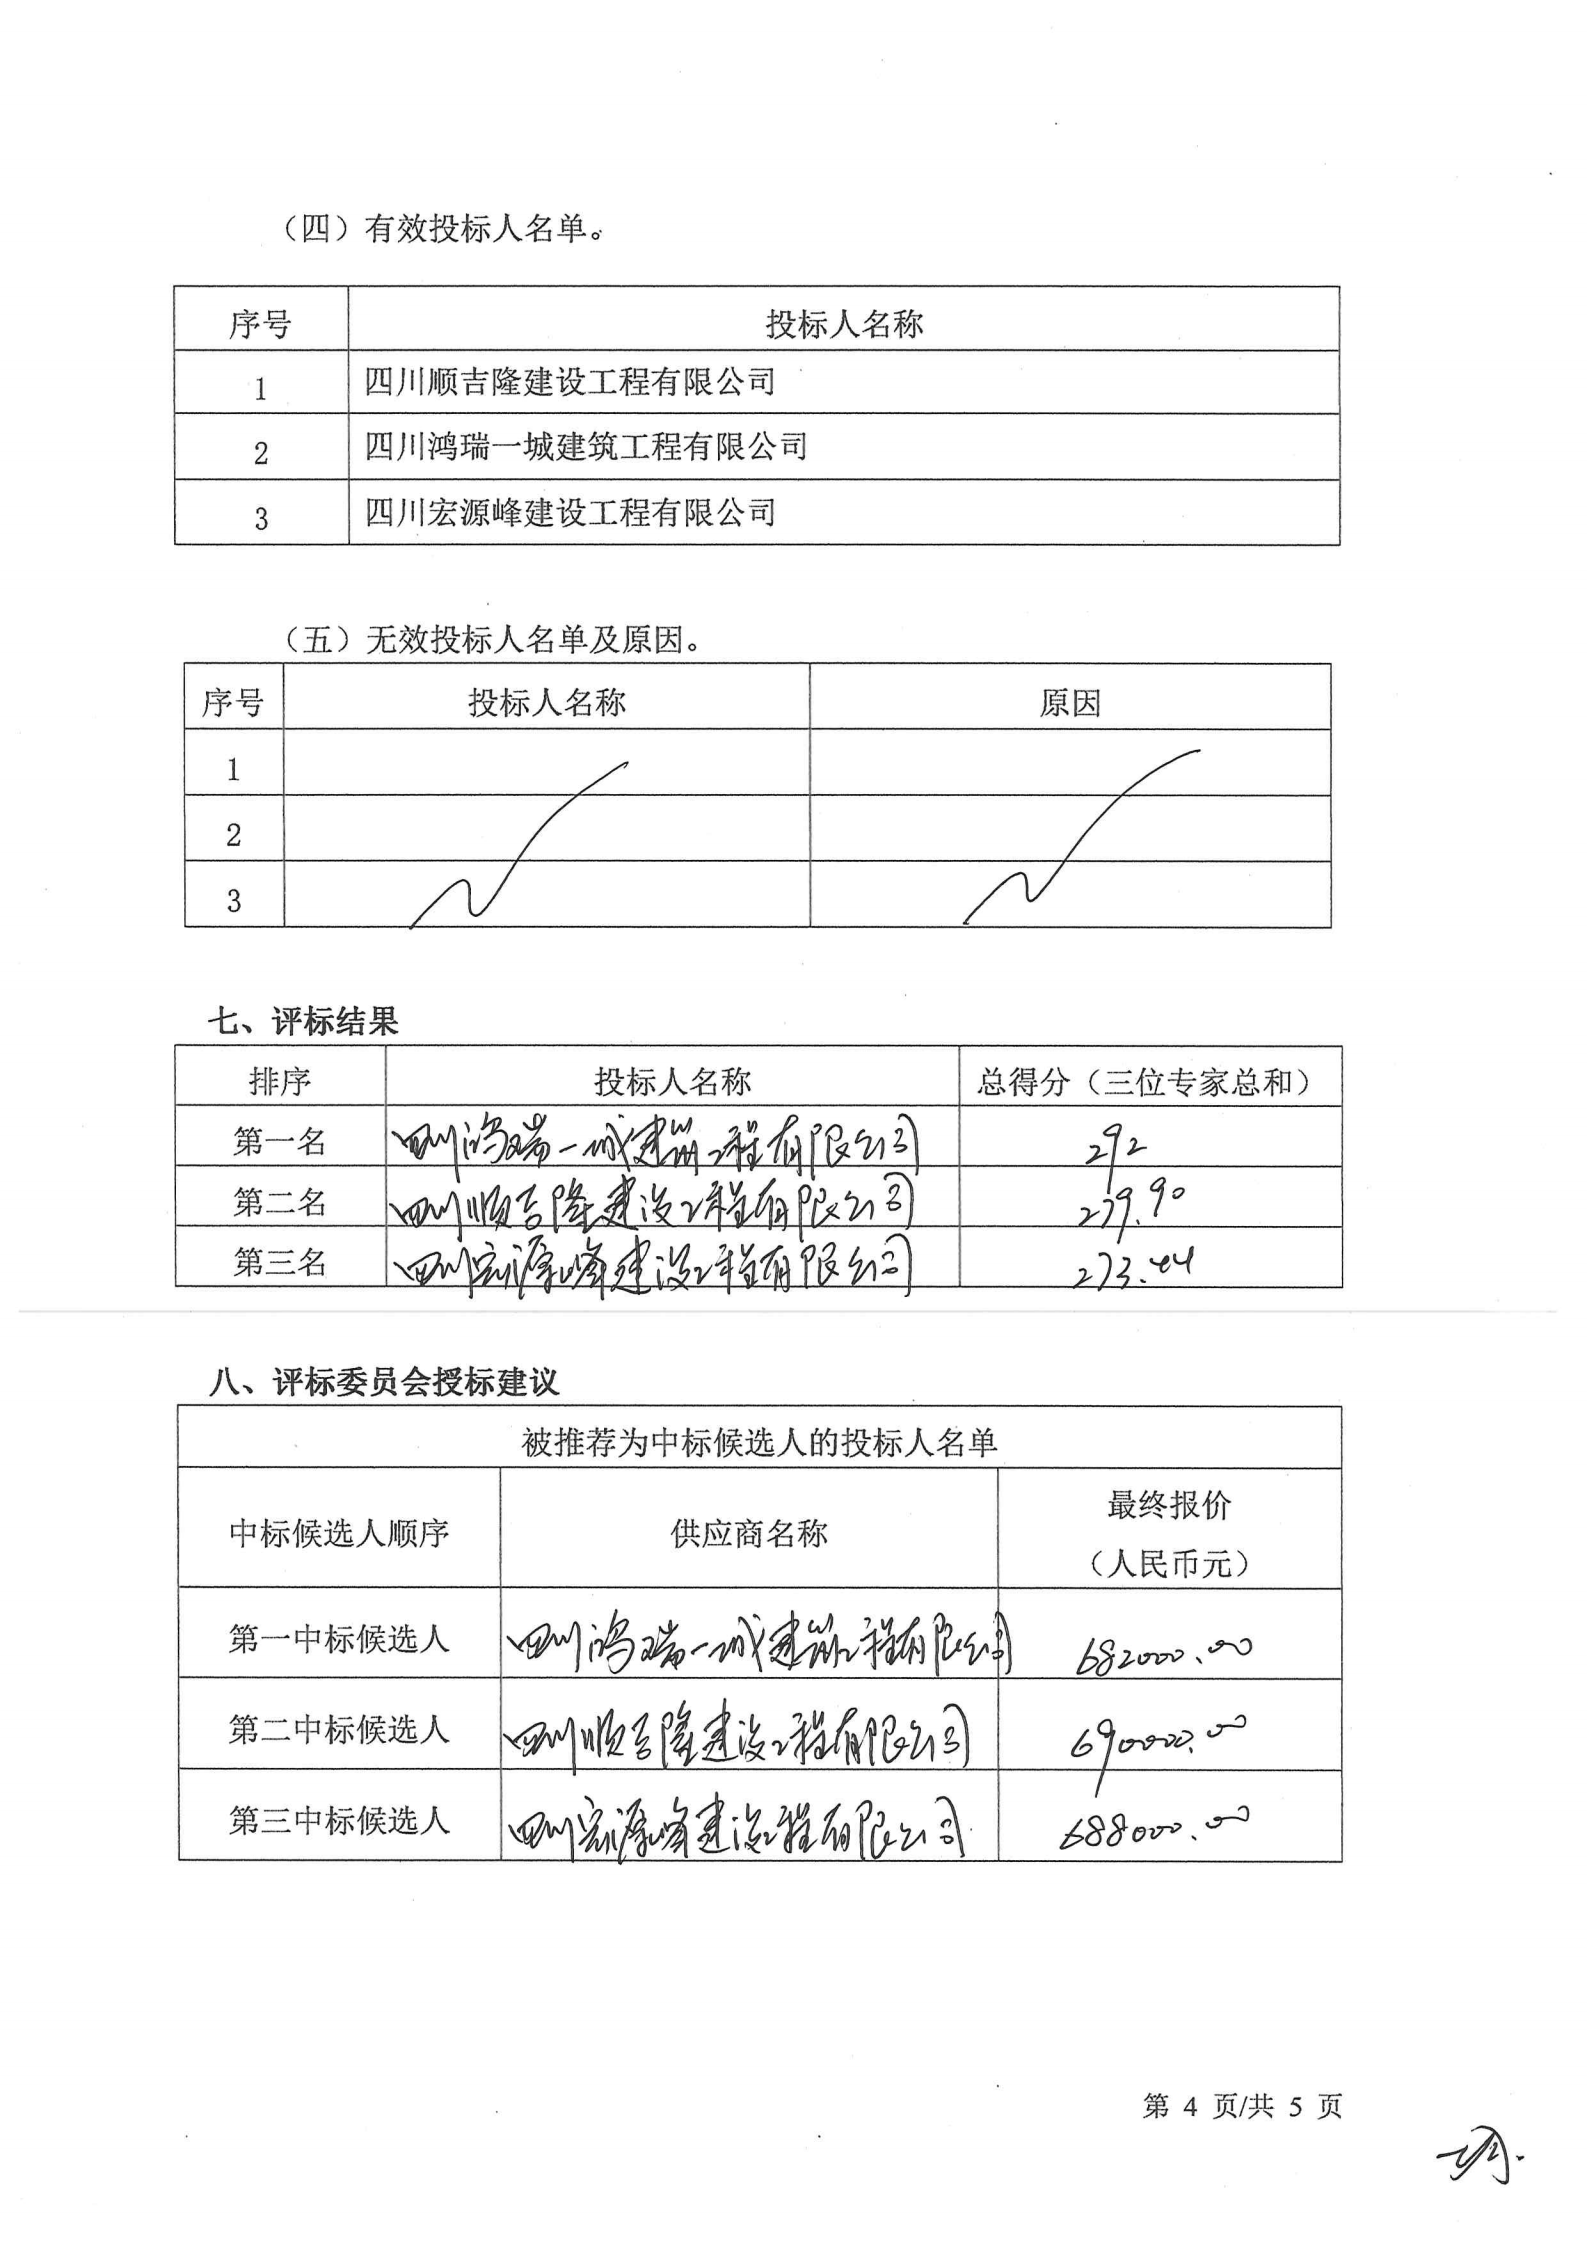 （四）有效投标人名单。
序号 投标人名称
1 四川顺吉隆建设工程有限公司
2 四川鸿瑞一城建筑工程有限公司
3 四川宏源峰建设工程有限公司
（五）无效投标人名单及原因。
序号 投标人名称 原因
1
2
3
七、评标结果
排序 投标人名称 总得分（三位专家总和）
第一名 四川鸿瑞一城建筑工程有限公司 292
第二名 四川顺吉隆建设工程有限公司 279.90
第三名 四川宏源峰建设工程有限公司 273.44
八、评标委员会授标建议
被推荐为中标候选人的投标人名单
中标候选人顺序 供应商名称 最终报价
（人民币元）
第一中标候选人 四川鸿瑞一城建筑工程有限公司 682000.00
第二中标候选人 四川顺吉隆建设工程有限公司 690000.00
第三中标候选人 四川宏源峰建设工程有限公司 688000.00
第 4 页/共 5 页